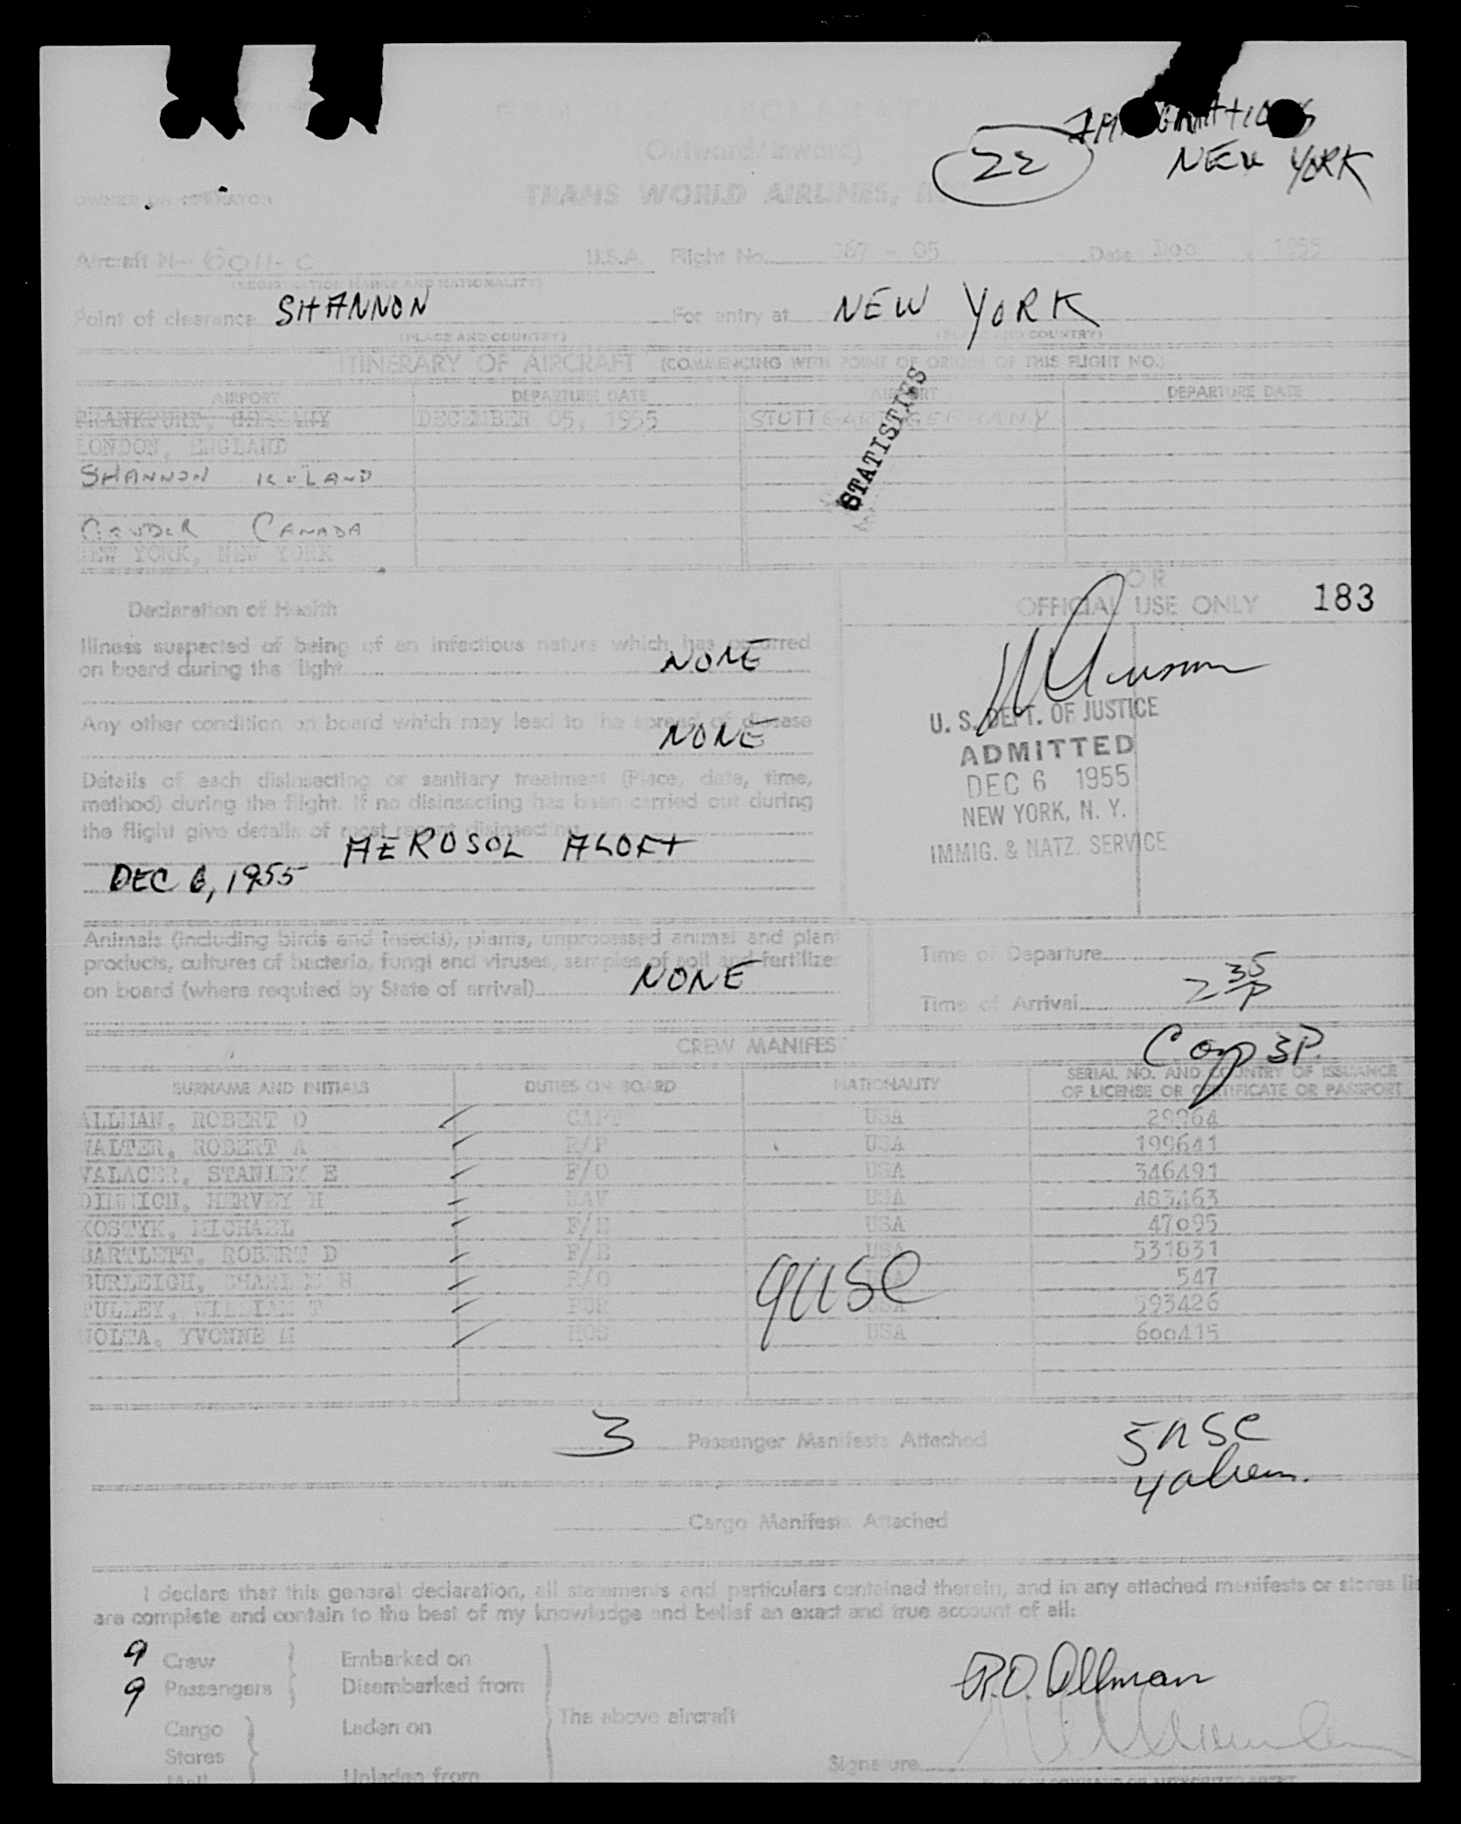 IMMIGRATIONS
22 NEW YORK
(Outward/Inward)
OWNER OR OPERATOR TRANS WORLD AIRLINES,
Aircraft N- 6011-C U.S.A. Flight No. 967 - 05 Date Dec 1955
(REGISTRATION MARKS AND NATIONALITY)
Point of clearance SHANNON For entry at NEW YORK
(PLACE AND COUNTRY) (PLACE AND COUNTRY)
ITINERARY OF AIRCRAFT (COMMENCING WITH POINT OF ORIGIN OF THIS FLIGHT NO.)
AIRPORT DEPARTURE DATE AIRPORT DEPARTURE DATE
FRANKFURT, GERMANY DECEMBER 05, 1955 STUTTGART GERMANY
LONDON, ENGLAND
SHANNON IRELAND
STATISTICS
GANDER CANADA
NEW YORK, NEW YORK
Declaration of Health
FOR
OFFICIAL USE ONLY 183
Illness suspected of being of an infectious nature which has occurred
on board during the flight NONE
Any other condition on board which may lead to the spread of disease
NONE
U. S. DEPT. OF JUSTICE
ADMITTED
DEC 6 1955
NEW YORK, N. Y.
IMMIG. & NATZ. SERVICE
Details of each disinsecting or sanitary treatment (Place, date, time,
method) during the flight. If no disinsecting has been carried out during
the flight give details of most recent disinsecting
AEROSOL ALOFT
DEC 6, 1955
Animals (including birds and insects), plants, unprocessed animal and plant
products, cultures of bacteria, fungi and viruses, samples of soil and fertilizer
on board (where required by State of arrival) NONE
Time of Departure
Time of Arrival 2 35 P
CREW MANIFEST
SURNAME AND INITIALS DUTIES ON BOARD NATIONALITY SERIAL NO. AND COUNTRY OF ISSUANCE
OF LICENSE OR CERTIFICATE OR PASSPORT
ALLMAN, ROBERT O CAPT USA 29964
WALTER, ROBERT A USA 199641
STANLEY E F/O USA 346491
HERVEY H NAV USA 483463
KOSTYK, MICHAEL F/E USA 47095
BARTLETT, ROBERT D F/E USA 531831
BURLEIGH, CHARLES H USA 547
PULLEY, WILLIAM T PUR USA 593426
YVONNE HOS USA 600415
9 USC
3 Passenger Manifests Attached
5 USC
4 alien.
Cargo Manifests Attached
I declare that this general declaration, all statements and particulars contained therein, and in any attached manifests or stores
are complete and contain to the best of my knowledge and belief an exact and true account of all:
9 Crew Embarked on
9 Passengers Disembarked from
The above aircraft
Cargo Laden on
Stores
Mail Unladen from
R.O. Allman
Signature